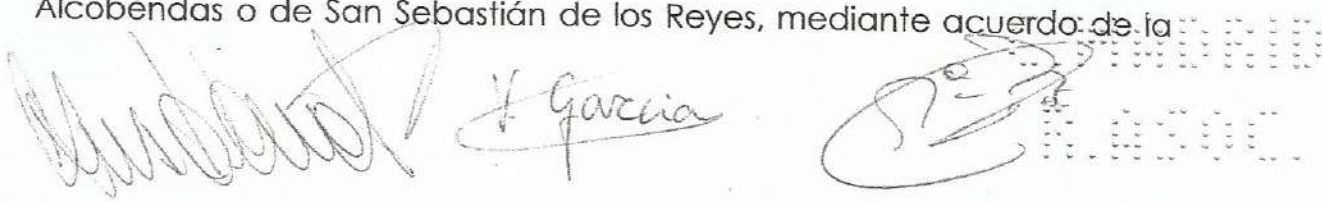 Alcobendas o de San Sebastián de los Reyes, mediante acuerdo de la
V. García
MADRID
R.ASOC.